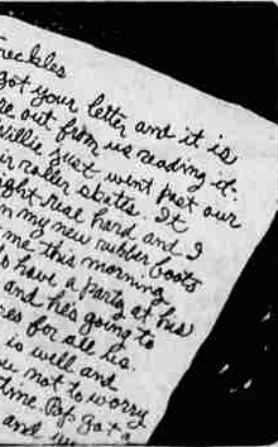 reckles
got your letter and it is
re out from us reading it.
Willie just went past our
ur roller skates. It
ight real hard and I
n my new rubber boots
t me this morning
s have a party at his
and he's going to
res for all us.
is well and
ou not to worry
time. Pop got a
and